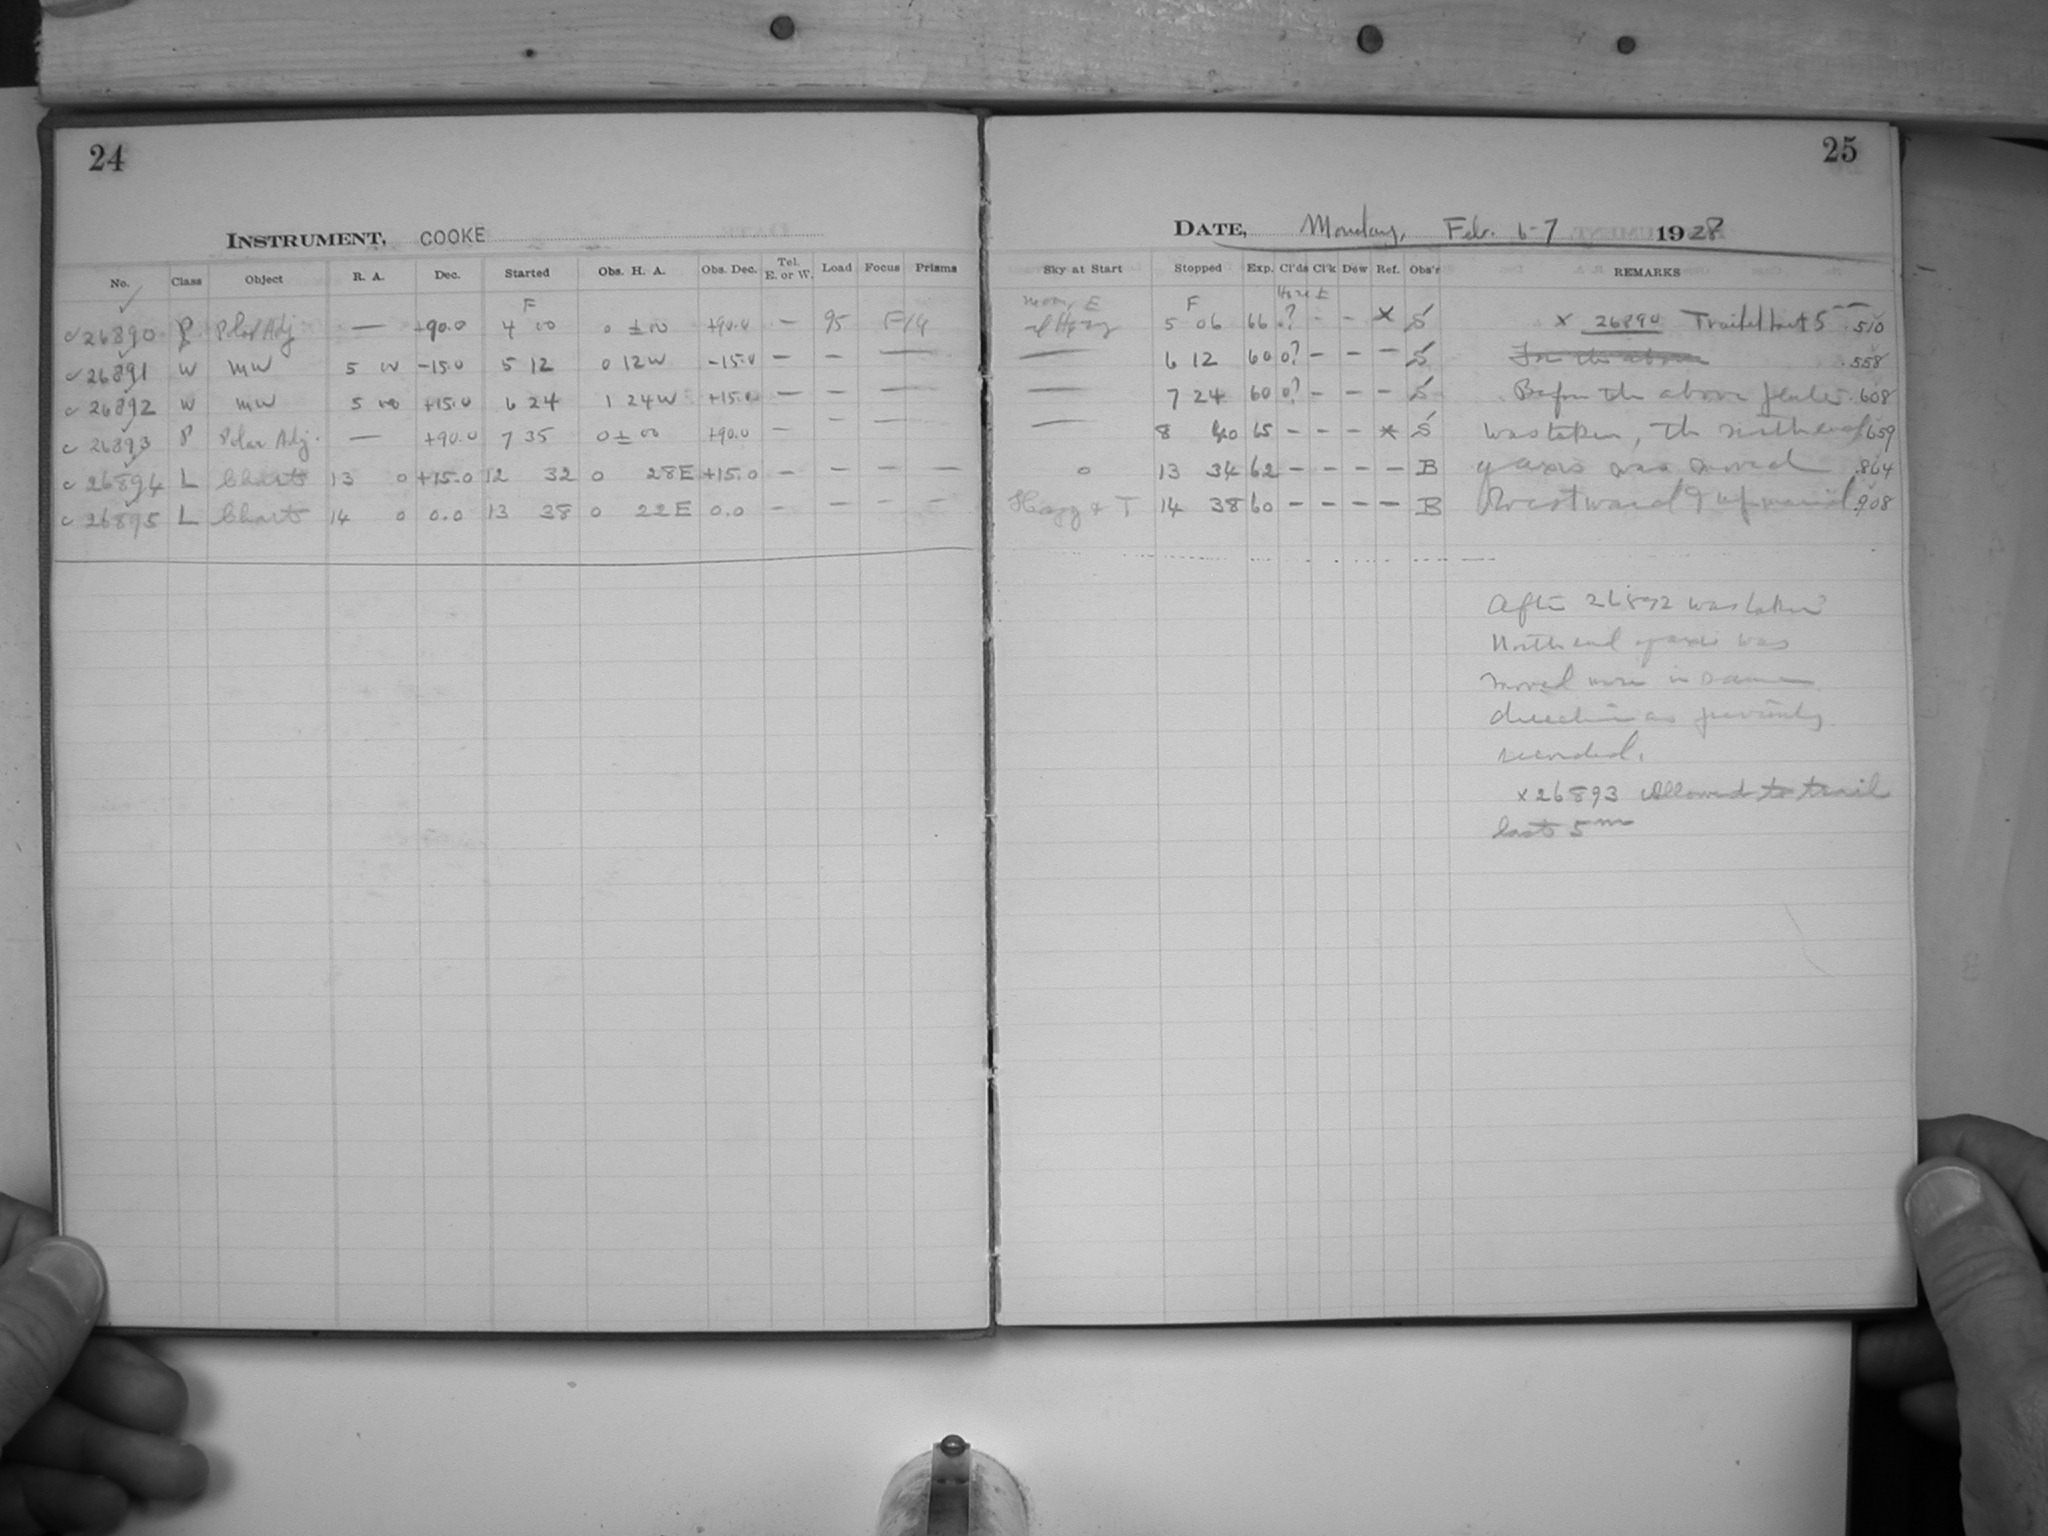 24
INSTRUMENT, COOKE
No. Class Object R. A. Dec. Started Obs. H. A. Obs. Dec. Tel. E. or W. Load Focus Prisms
F
c 26890 P Polar Adj — +90.0 4 00 0 ± 00 +90.0 — 95 F/9
c 26891 W MW 5 00 -15.0 5 12 0 12W -15.0 — — —
c 26892 W MW 5 00 +15.0 6 24 1 24W +15.0 — — —
c 26893 P Polar Adj. — +90.0 7 35 0 ± 00 +90.0 — — —
c 26894 L Charts 13 0 +15.0 12 32 0 28E +15.0 — — — —
c 26895 L Charts 14 0 0.0 13 38 0 22E 0.0 — — — —
25
DATE, Monday, Feb. 6-7 1928
Sky at Start Stopped Exp. Cl'ds Cl'k Dew Ref. Obs'r REMARKS
Moon, E F Haze
Hazy 5 06 66 ? - - x S x 26890 Trailed last 5 .510
— 6 12 60 0? - - - S For the above .558
— 7 24 60 0? - - - S Before the above plates .608
— 8 40 65 - - - * S was taken, the north end of .659
0 13 34 62 - - - - B y axis was moved .864
Hazy & T 14 38 60 - - - - B westward & upward .908
After 26892 was taken
North end of axis was
moved more in same
direction as previously
recorded.
x 26893 Allowed to trail
last 5m